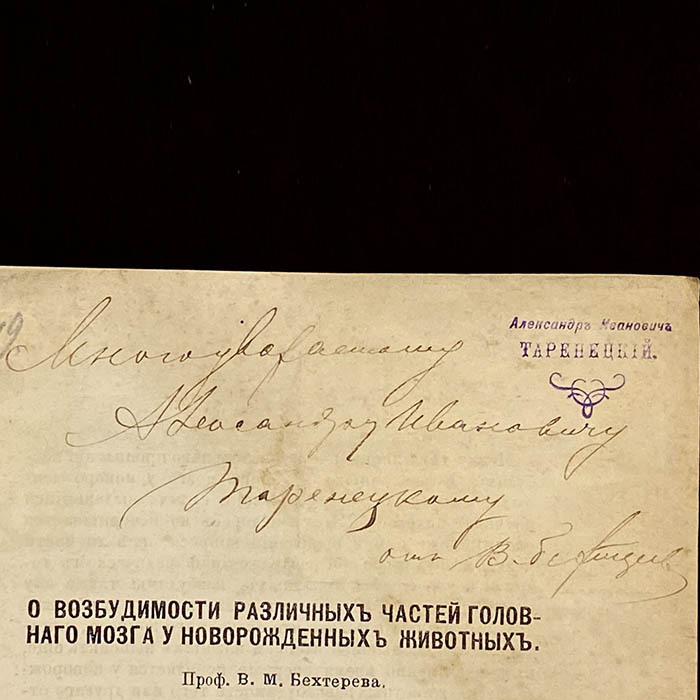 Александръ Ивановичъ
ТАРЕНЕЦКІЙ.
Многоуважаемому
Александру Ивановичу
Таренецкому
отъ В. Бехтерева
О ВОЗБУДИМОСТИ РАЗЛИЧНЫХЪ ЧАСТЕЙ ГОЛОВ-
НАГО МОЗГА У НОВОРОЖДЕННЫХЪ ЖИВОТНЫХЪ.
Проф. В. М. Бехтерева.